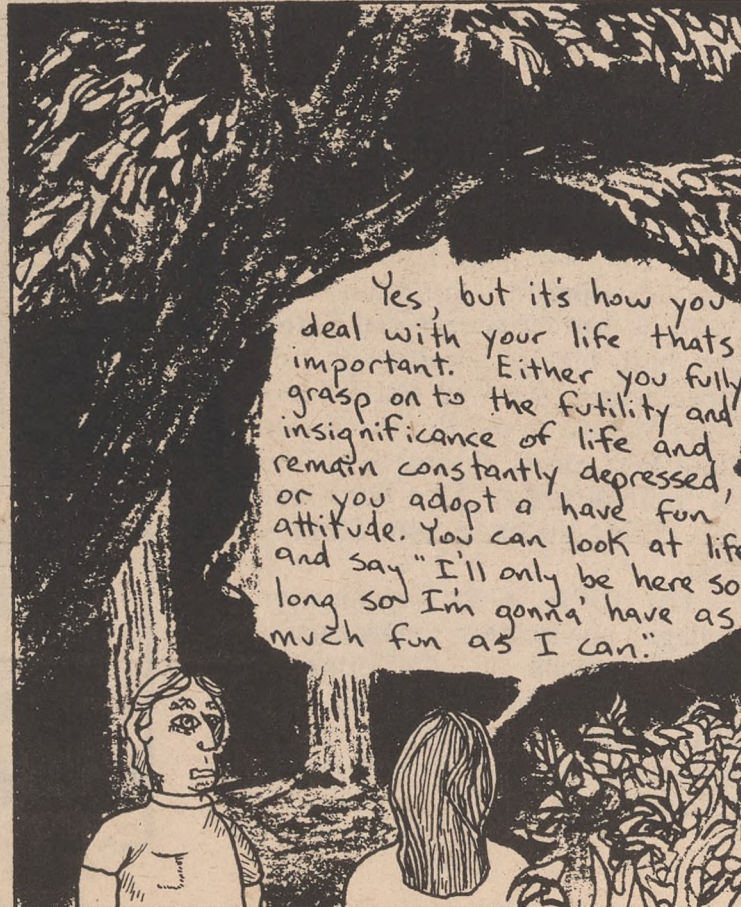 Yes, but it's how you
deal with your life thats
important. Either you fully
grasp on to the futility and
insignificance of life and
remain constantly depressed,
or you adopt a have fun
attitude. You can look at life
and say "I'll only be here so
long so I'm gonna' have as
much fun as I can."